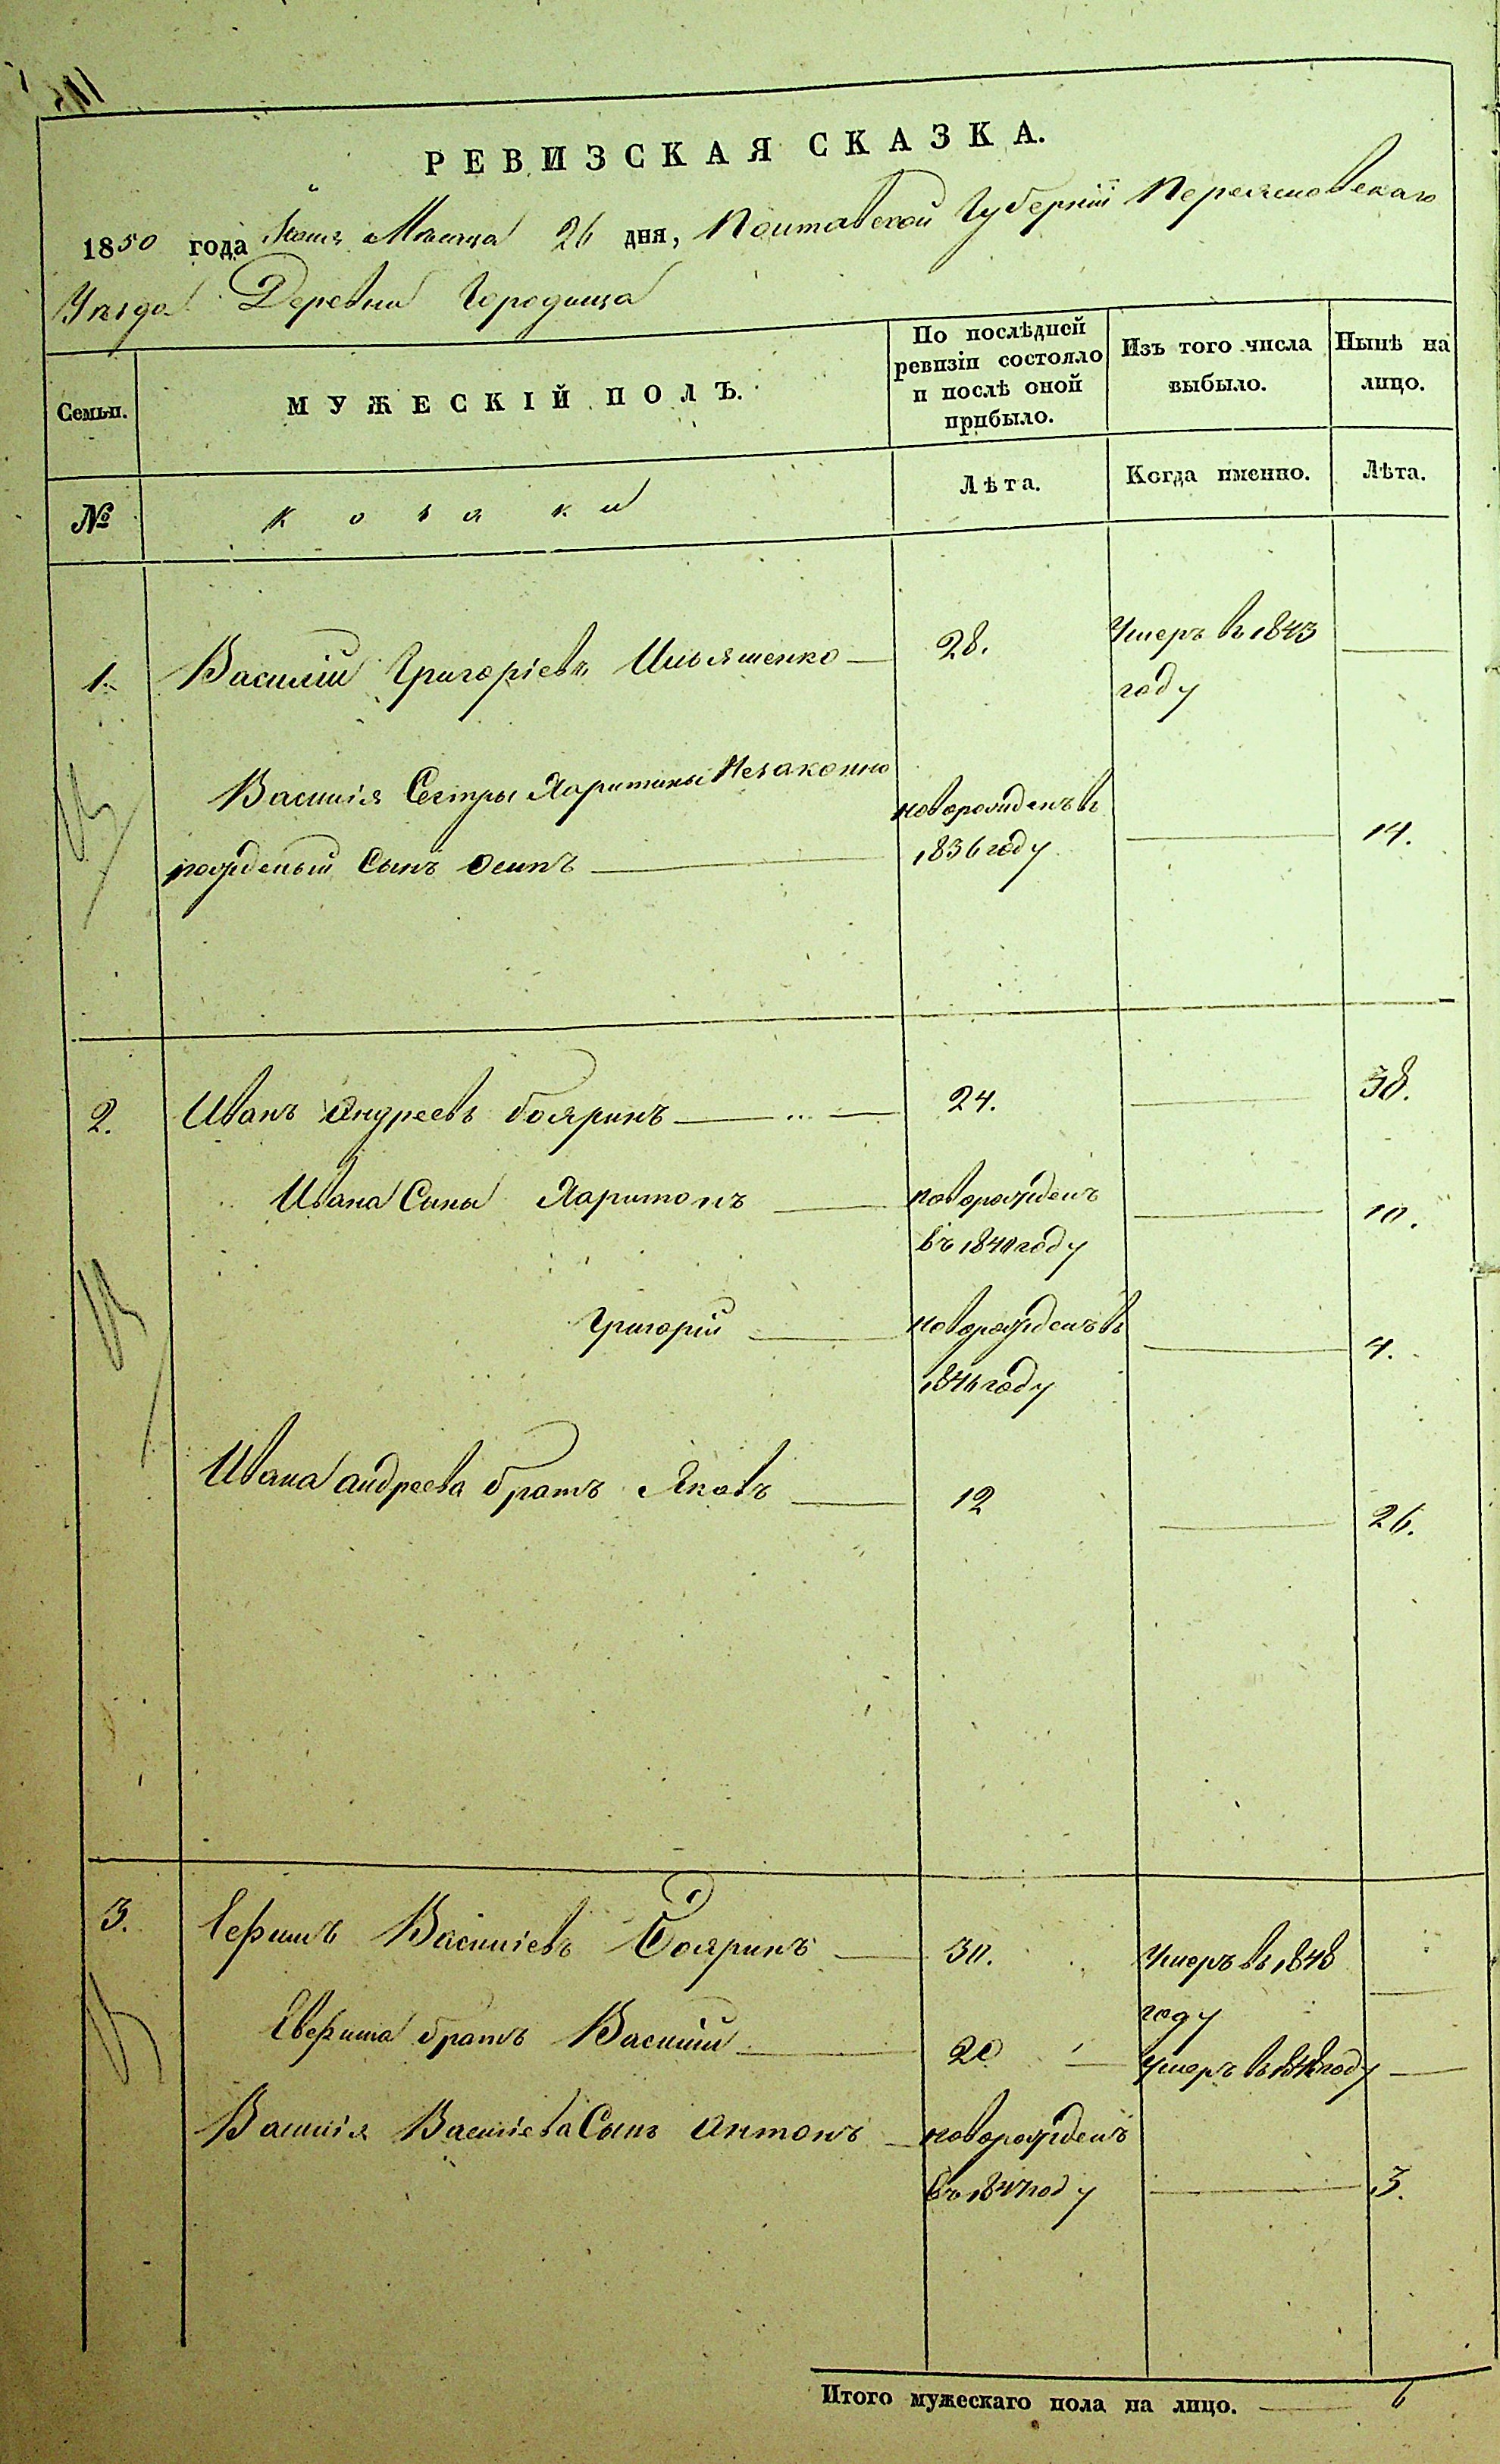 РЕВИЗСКАЯ СКАЗКА.
1850 года Мѣсяца 26 дня, Полтавской Губерніи Переяславскаго
Уѣзда Деревни Городища
Семьи. МУЖЕСКІЙ ПОЛЪ. По послѣдней ревизіи состояло и послѣ оной прибыло. Изъ того числа выбыло. Нынѣ на лицо.
№ Козаки Лѣта. Когда именно. Лѣта.
1. Василій Григоріевъ Ильяшенко 28. Умеръ въ 1843
году
Василія Сестры Харитины Незаконно новорожденъ в
рожденый Сынъ Осипъ 1836 году 14.
2. Иванъ Андреевъ Бояринъ 24. 38.
Ивана Сыны Харитонъ новорожденъ 10.
въ 1840 году
Григорій новорожденъ въ 4.
1846 году
Ивана андреева братъ Яковъ 12 26.
3. Ефимъ Василіевъ Бояринъ 30. Умеръ въ 1848
году
Евфима братъ Василій 20 Умеръ в 1848 году
Василія Василіева Сынъ Антонъ новорожденъ
въ 1847 году 3.
Итого мужескаго пола на лицо. 6